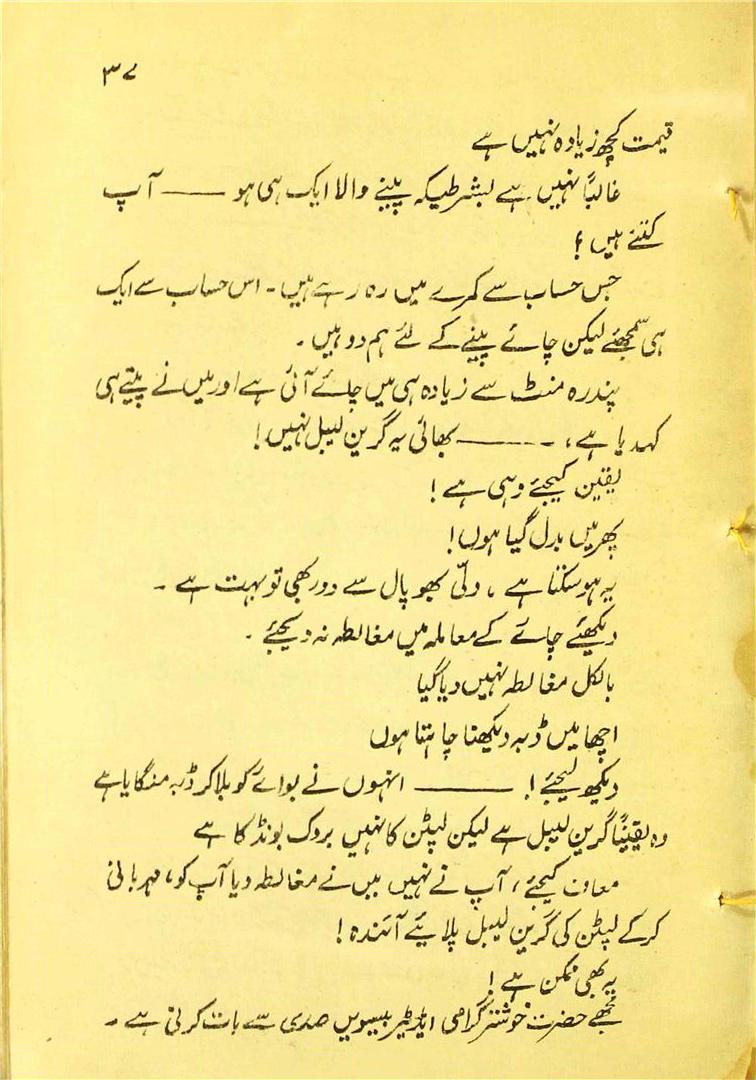 ۳۷
قیمت کچھ زیادہ نہیں ہے
غالباً نہیں ہے بشرطیکہ پینے والا ایک ہی ہو —— آپ
کتنے ہیں ؟
جس حساب سے کمرے میں رہ رہے ہیں ۔ اس حساب سے ایک
ہی سمجھئے لیکن چائے پینے کے لئے ہم دو ہیں ۔
پندرہ منٹ سے زیادہ ہی میں چائے آئی ہے اور میں نے پیتے ہی
کہدیا ہے، ۔ —— بھائی یہ گرین لیبل نہیں !
یقین کیجئے وہی ہے !
پھر میں بدل گیا ہوں !
یہ ہو سکتا ہے ، دلّی بھوپال سے دور بھی تو بہت ہے ۔
دیکھئے چائے کے معاملہ میں مغالطہ نہ دیجئے ۔
بالکل مغالطہ نہیں دیا گیا
اچھا میں ڈبہ دیکھنا چاہتا ہوں
دیکھ لیجئے ! —— انہوں نے بوائے کو بلاکر ڈبہ منگایا ہے
وہ یقیناً گرین لیبل ہے لیکن لپٹن کا نہیں بروک بونڈ کا ہے
معاف کیجئے ، آپ نے نہیں میں نے مغالطہ دیا آپ کو، مہربانی
کرکے لپٹن کی گرین لیبل پلائیے آئندہ !
یہ بھی ممکن ہے !
مجھے حضرت خوشتر گرامی ایڈیٹر بیسویں صدی سے بات کرنی ہے ۔